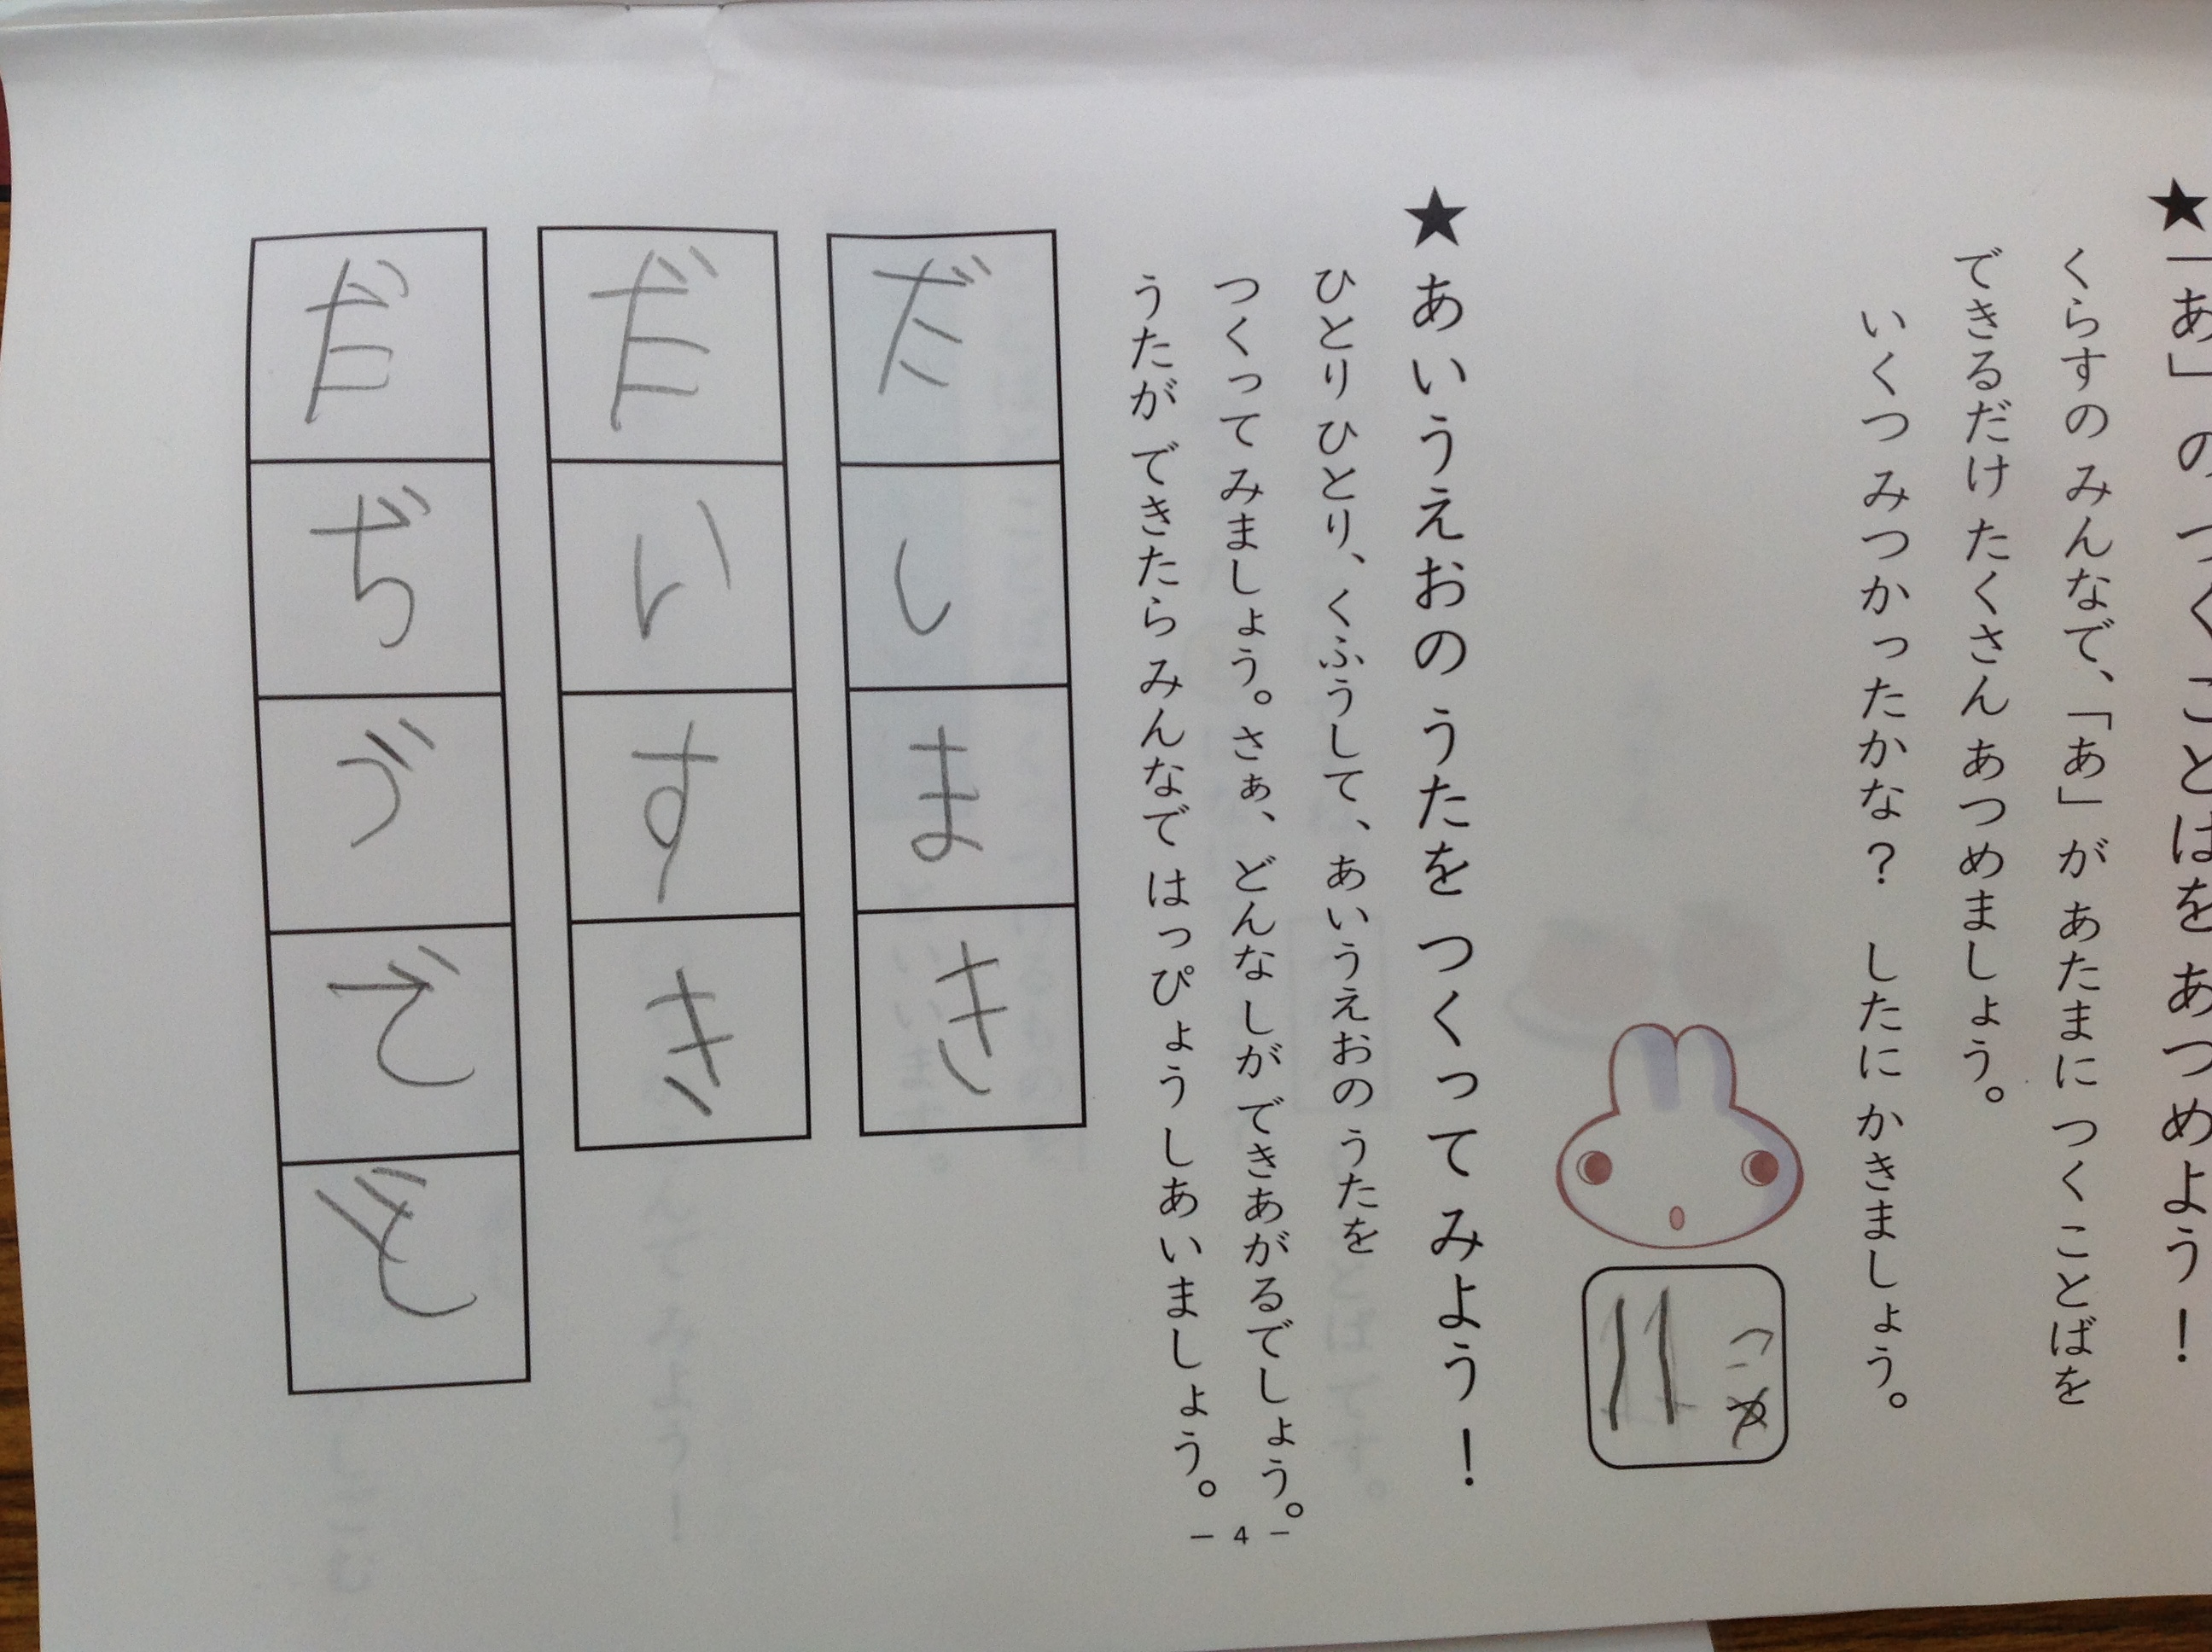 ★「あ」のつくことばを あつめよう！
くらすの みんなで、「あ」が あたまに つくことばを
できるだけ たくさん あつめましょう。
いくつ みつかったかな？ したに かきましょう。
11 こ
★あいうえおの うたを つくって みよう！
ひとりひとり、くふうして、あいうえおの うたを
つくって みましょう。さぁ、どんな しが できあがるでしょう。
うたが できたら みんなで はっぴょう しあいましょう。
だしまき
だいすき
だぢづでど
－ 4 －